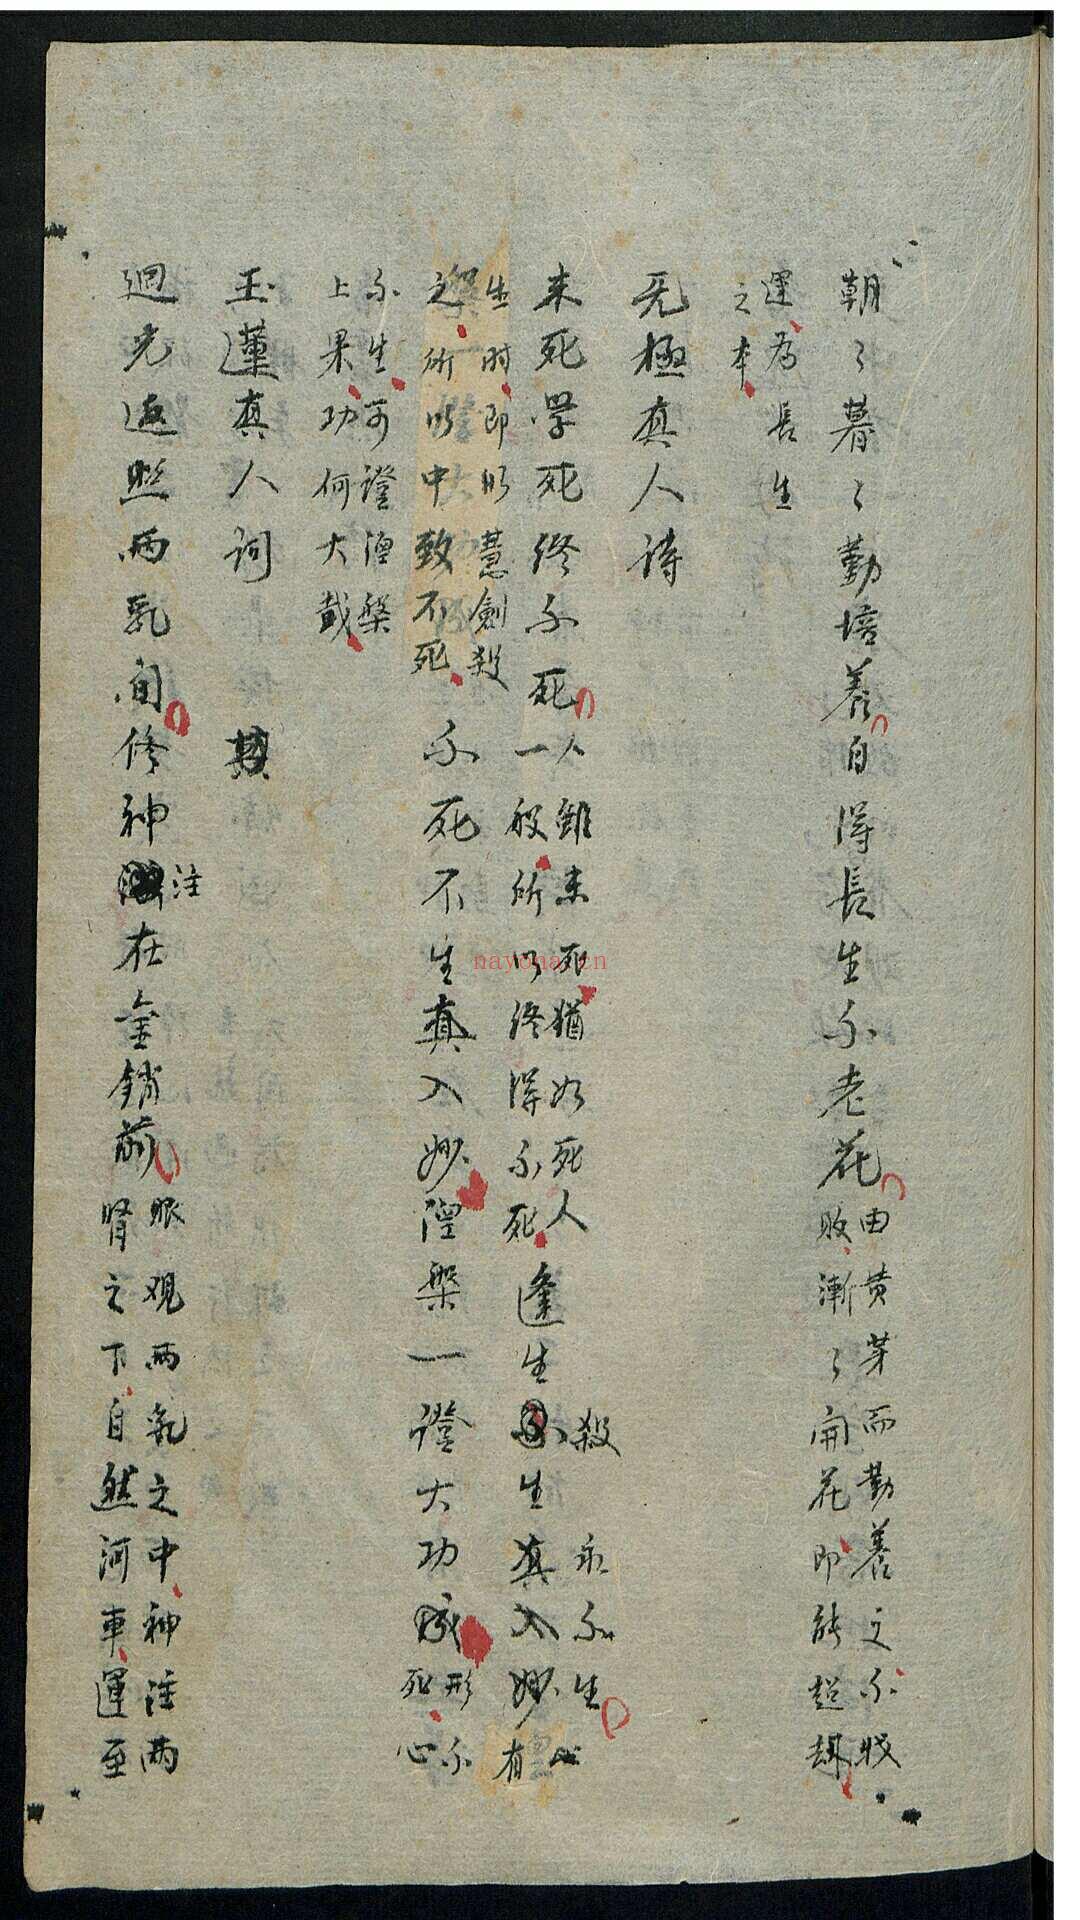 朝〻暮〻勤培养自得長生不老花由黄芽而勤養之不
敗漸〻開花即能超
運為長生
之本
无極真人诗
未死学死终不死人雖未死猶如死人
一般所以终得不死逢生殺生永不生心有
生时即以慧劍殺
之所以中致不死不死不生真入妙涅槃一證大功成形不
死心
不生可證涅槃
上果功何大哉
玉蓮真人词
迴光返照两乳间修神注在金鎖前眼观两乳之中神注两
腎之下自然河車運至
nayona.cn